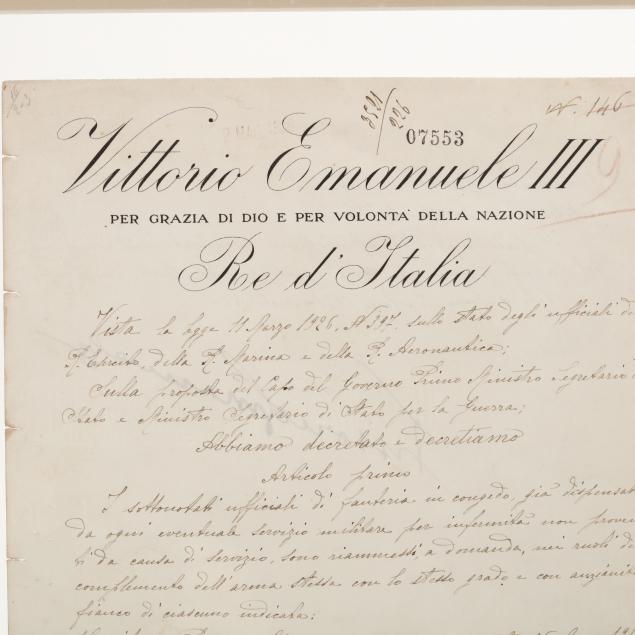 3521
226
07553
N. 146
Vittorio Emanuele III
PER GRAZIA DI DIO E PER VOLONTA' DELLA NAZIONE
Re d'Italia
Vista la legge 11 Marzo 1926, N 397. sullo stato degli ufficiali de
R. Esercito, della R. Marina e della R. Aeronautica;
Sulla proposta del Capo del Governo Primo Ministro Segretario
Stato e Ministro Segretario di Stato per la Guerra;
Abbiamo decretato e decretiamo
Articolo primo
I sottonotati ufficiali di fanteria in congedo, già dispensat
da ogni eventuale servizio militare per infermità non prove
ti da causa di servizio, sono riammessi, a domanda, nei ruoli d
complemento dell'arma stessa con lo stesso grado e con anzianit
fianco di ciascuno indicata: